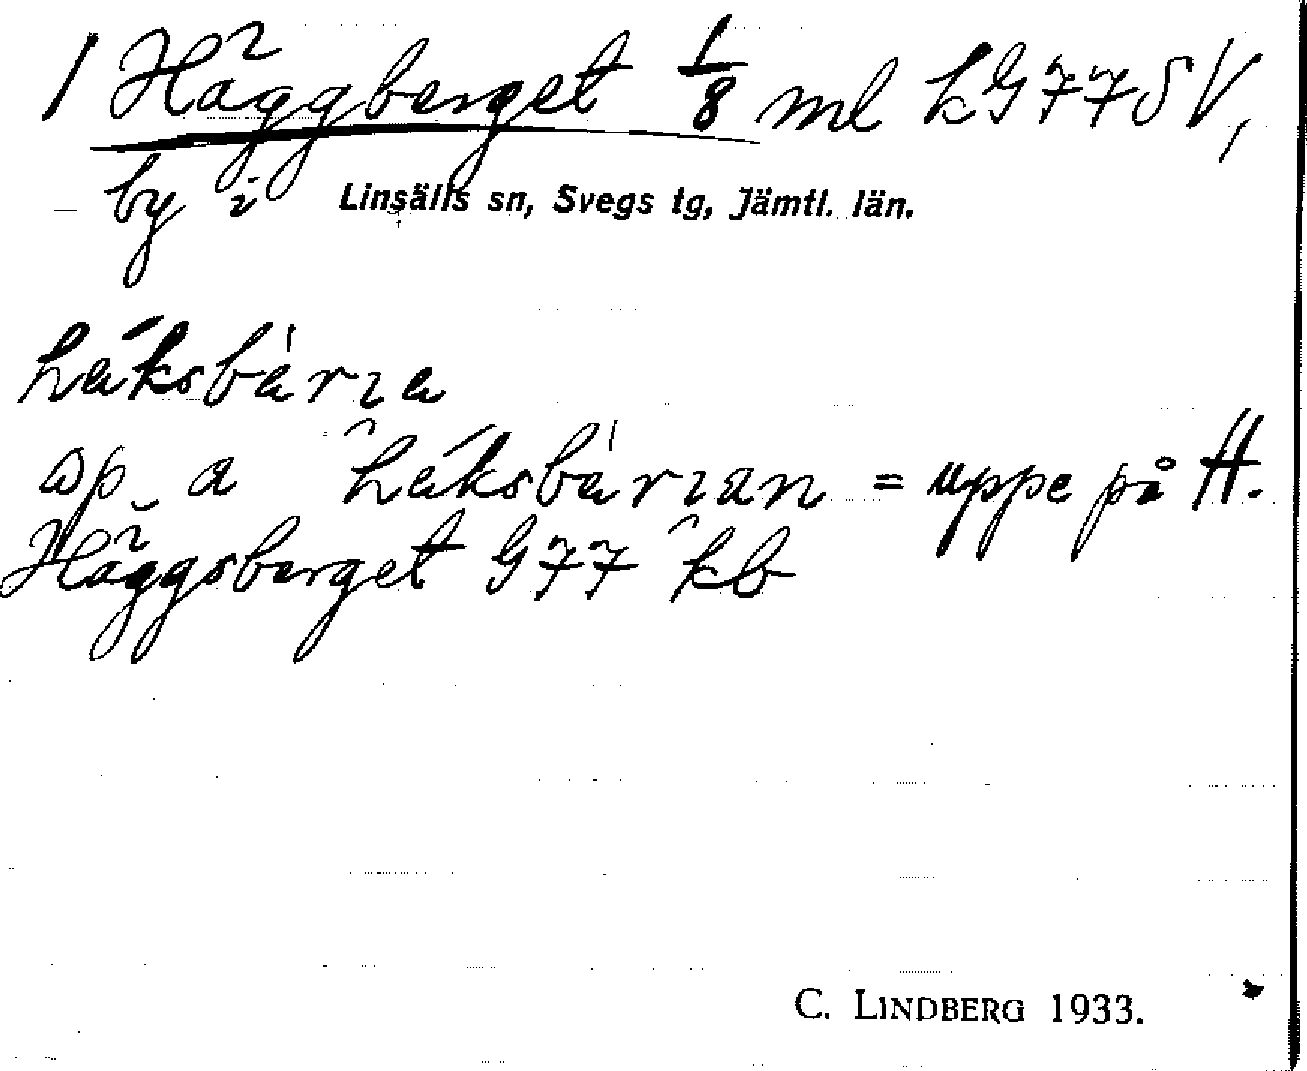 1 Häggberget 1/8 ml kG77SV,
by i Linsälls sn, Svegs tg, Jämtl. län.
háksbárıa
up a háksbárıan = uppe på H.
Häggsberget G77 kb
C. LINDBERG 1933.